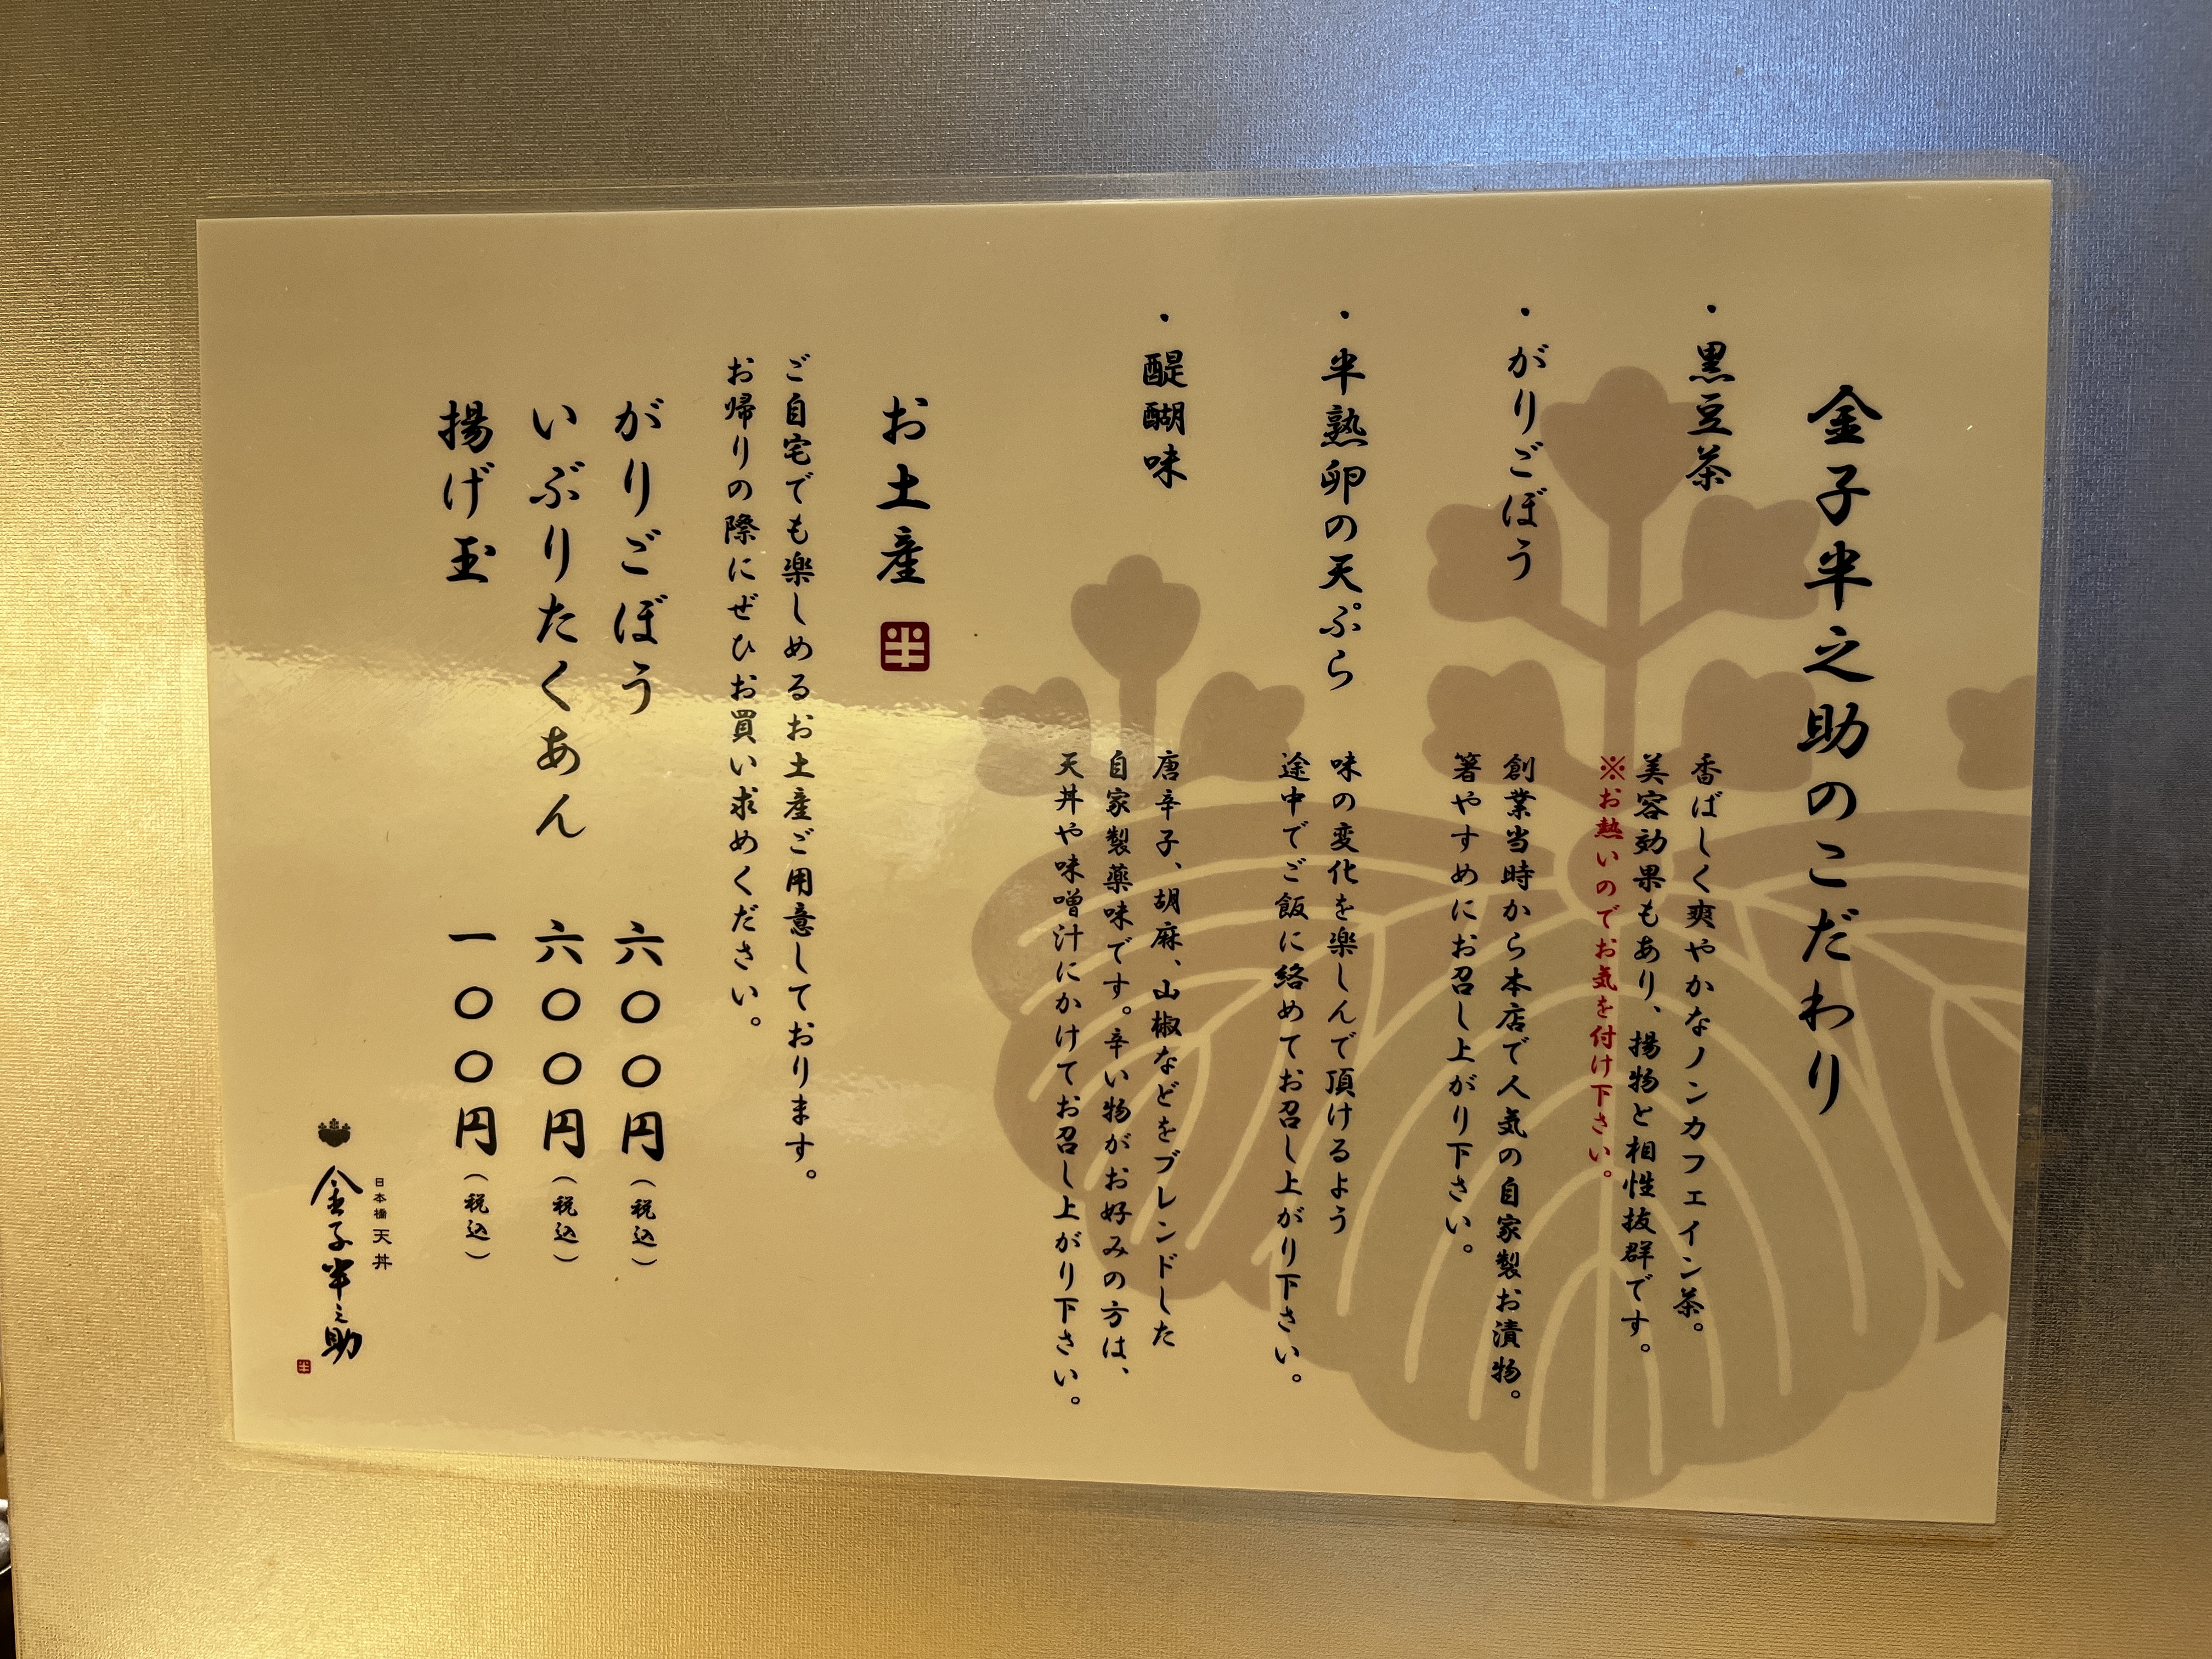 金子半之助のこだわり
・黒豆茶
香ばしく爽やかなノンカフェイン茶。
美容効果もあり、揚物と相性抜群です。
※お熱いのでお気を付け下さい。
・がりごぼう
創業当時から本店で人気の自家製お漬物。
箸やすめにお召し上がり下さい。
・半熟卵の天ぷら
味の変化を楽しんで頂けるよう
途中でご飯に絡めてお召し上がり下さい。
・醍醐味
唐辛子、胡麻、山椒などをブレンドした
自家製薬味です。辛い物がお好みの方は、
天丼や味噌汁にかけてお召し上がり下さい。
お土産 半
ご自宅でも楽しめるお土産ご用意しております。
お帰りの際にぜひお買い求めください。
がりごぼう 六〇〇円（税込）
いぶりたくあん 六〇〇円（税込）
揚げ玉 一〇〇円（税込）
日本橋 天丼
金子半之助
半